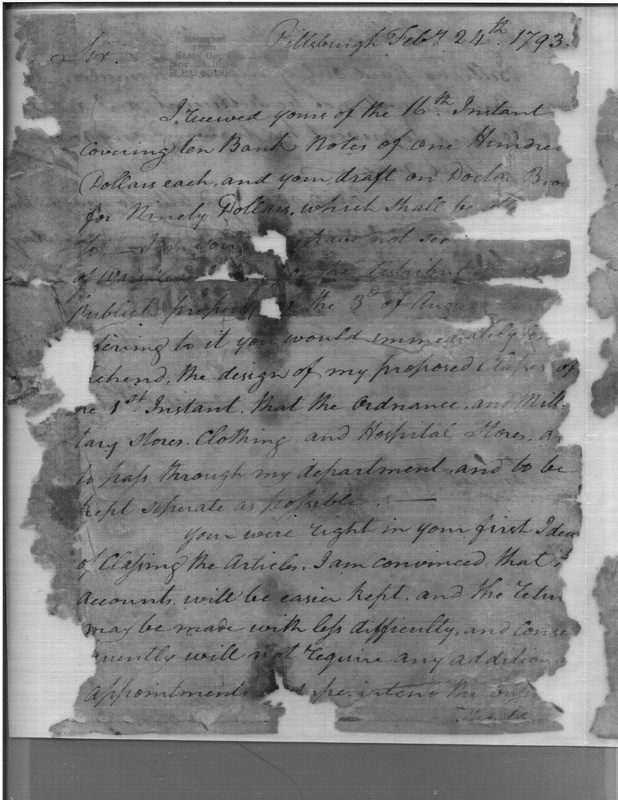 Pittsburgh Feby. 24th. 1793.
Sir.
I received yours of the 16th. Instant
Covering ten Bank Notes of one Hundre
Dollars each, and your draft on Doctor Bro
for Ninety Dollars. which shall be
have not
of the distribut
publick the 3d of Aug
fering to it you would immediately
rehend, the design of my proposed Classes of
he 1st Instant. that the Ordnance, and Mili
tary Stores. Clothing and Hospital Stores. a
to pass through my department, and to be
kept seperate as possible. —
Your were right in your first Idea
of Classing the Articles. I am convinced. that
accounts. will be easier kept. and the Retur
may be made with less difficulty, and conse
quently will not require any addition
appointments the